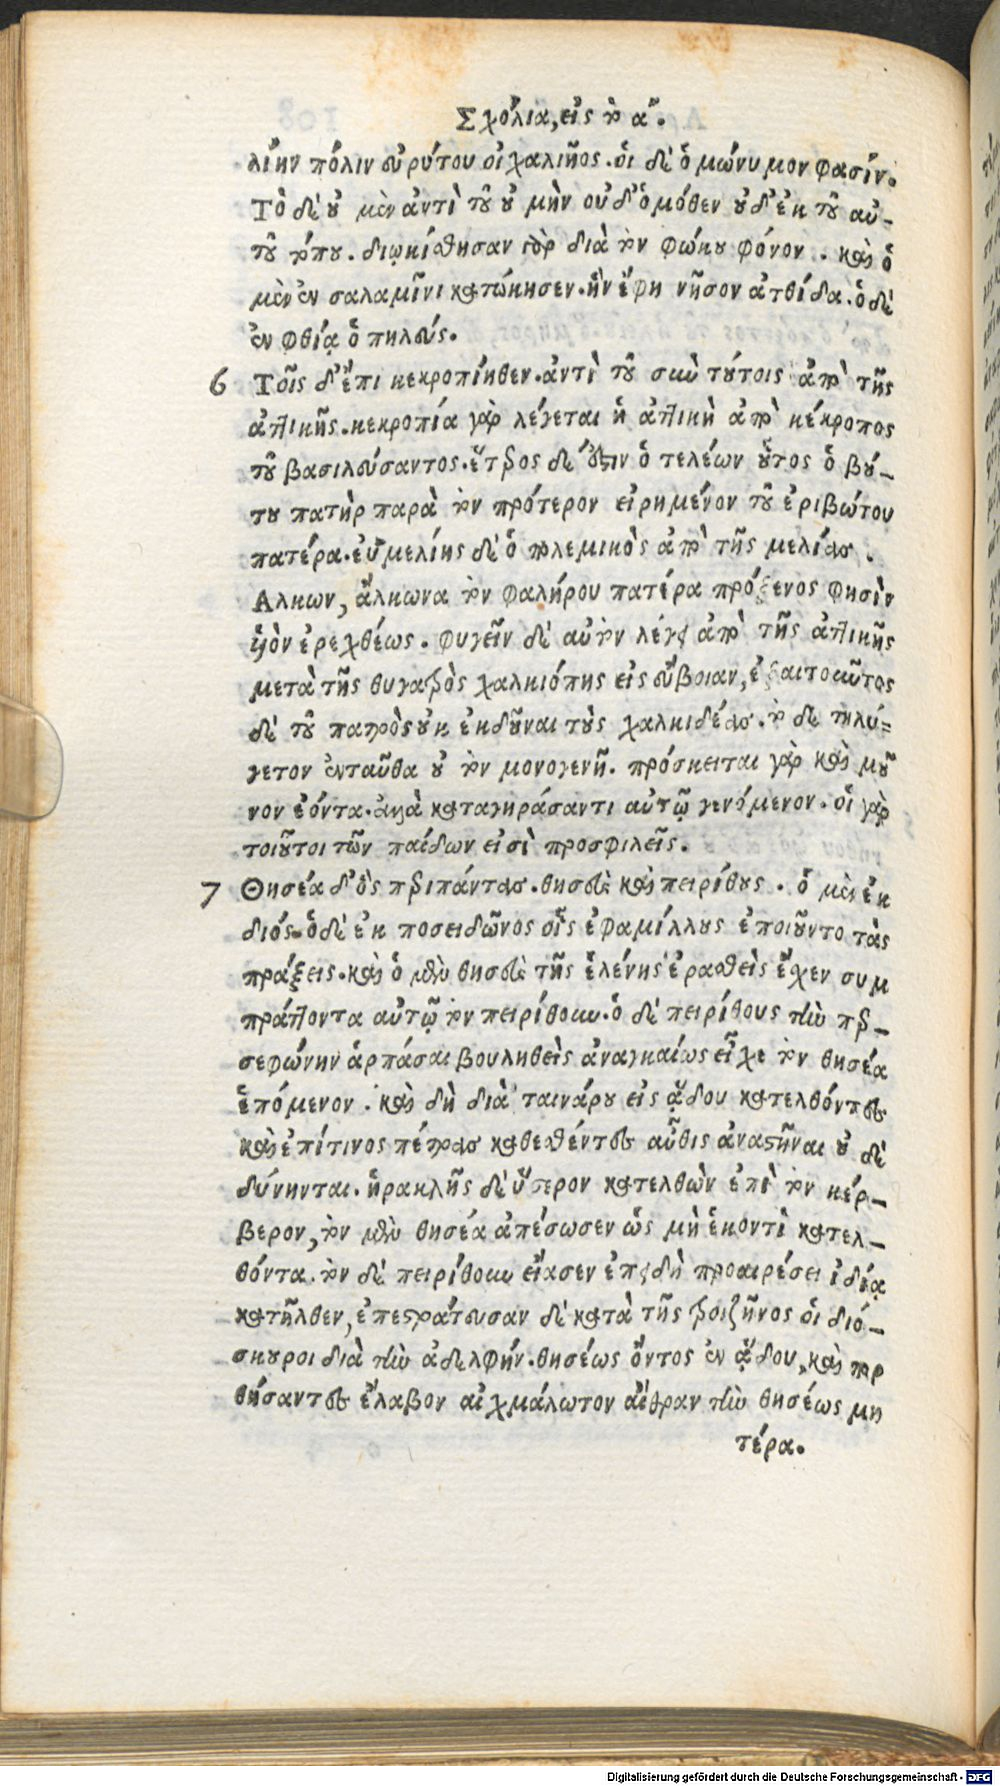 Σχόλια, εἰς τὸ αʹ.
λίην πόλιν εὐρύτου οἰχαλιῆος. οἱ δὲ ὁμώνυμον φασίν.
Τὸ δὲ οὐ μὲν ἀντὶ τοῦ οὐ μὴν οὐδ' ὁμόθεν οὐδ' ἐκ τοῦ αὐ-
τοῦ τόπου. διῳκίσθησαν γὰρ διὰ τὸν φώκου φόνον. καὶ ὁ
μὲν ἐν σαλαμῖνι κατώκησεν. ἣν ἔφη νῆσον ἀτθίδα. ὁ δὲ
ἐν φθίᾳ ὁ πηλεύς.
6 Τοῖς δ' ἔπι κεκροπίηθεν. ἀντὶ τοῦ σὺν τούτοις ἀπὸ τῆς
ἀττικῆς. κεκροπία γὰρ λέγεται ἡ ἀττικὴ ἀπὸ κέκροπος
τοῦ βασιλεύσαντος. ἕτερος δέ ἐστιν ὁ τελέων οὗτος ὁ βού-
του πατὴρ παρὰ τὸν πρότερον εἰρημένον τοῦ ἐριβώτου
πατέρα. ἐϋμελίης δὲ ὁ πολεμικὸς ἀπὸ τῆς μελίας.
Αλκων, ἄλκωνα τὸν φαλήρου πατέρα πρόξενος φησὶν
ὑὸν ἐρεχθέως. φυγεῖν δὲ αὐτὸν λέγει ἀπὸ τῆς ἀττικῆς
μετὰ τῆς θυγατρὸς χαλκιόπης εἰς εὔβοιαν, ἐξαιτοῦντος
δὲ τοῦ πατρὸς οὐκ ἐκδοῦναι τοὺς χαλκιδέας. τὸ δὲ τηλύ=
γετον ἐνταῦθα οὐ τὸν μονογενῆ. πρόσκειται γὰρ καὶ μοῦ
νον ἐόντα. ἀλλὰ καταγηράσαντι αὐτῷ γενόμενον. οἱ γὰρ
τοιοῦτοι τῶν παίδων εἰσὶ προσφιλεῖς.
7 Θησέα δ' ὃς περιπάντας. θησεὺς καὶ πειρίθους. ὁ μὲν ἐκ
διός. ὁ δὲ ἐκ ποσειδῶνος οἷς ἐφαμίλλους ἐποιοῦντο τὰς
πράξεις. καὶ ὁ μὲν θησεὺς τῆς ἑλένης ἐρασθεὶς ἔχεν συμ
πράττοντα αὐτῷ τὸν πειρίθουν. ὁ δὲ πειρίθους τὴν περ-
σεφώνην ἁρπάσαι βουληθεὶς ἀναγκαίως εἶχε τὸν θησέα
ἑπόμενον. καὶ δὴ διὰ ταινάρου εἰς ᾅδου κατελθόντες
καὶ ἐπίτινος πέτρας καθεσθέντες αὖθις ἀναστῆναι οὐ δὲ
δύνηνται. ἡρακλῆς δὲ ὕστερον κατελθὼν ἐπὶ τὸν κέρ-
βερον, τὸν μὲν θησέα ἀπέσωσεν ὡς μὴ ἑκοντὶ κατελ-
θόντα. τὸν δὲ πειρίθουν εἴασεν ἐπειδὴ προαιρέσει ἰδίᾳ
κατῆλθεν, ἐπεστράτευσαν δὲ κατὰ τῆς τροιζῆνος οἱ διό-
σκουροι διὰ τὴν ἀδελφήν. θησέως ὄντος ἐν ᾅδου, καὶ πορ
θήσαντες ἔλαβον αἰχμάλωτον αἴθραν τὴν θησέως μη
τέρα.
Digitalisierung gefördert durch die Deutsche Forschungsgemeinschaft - DFG